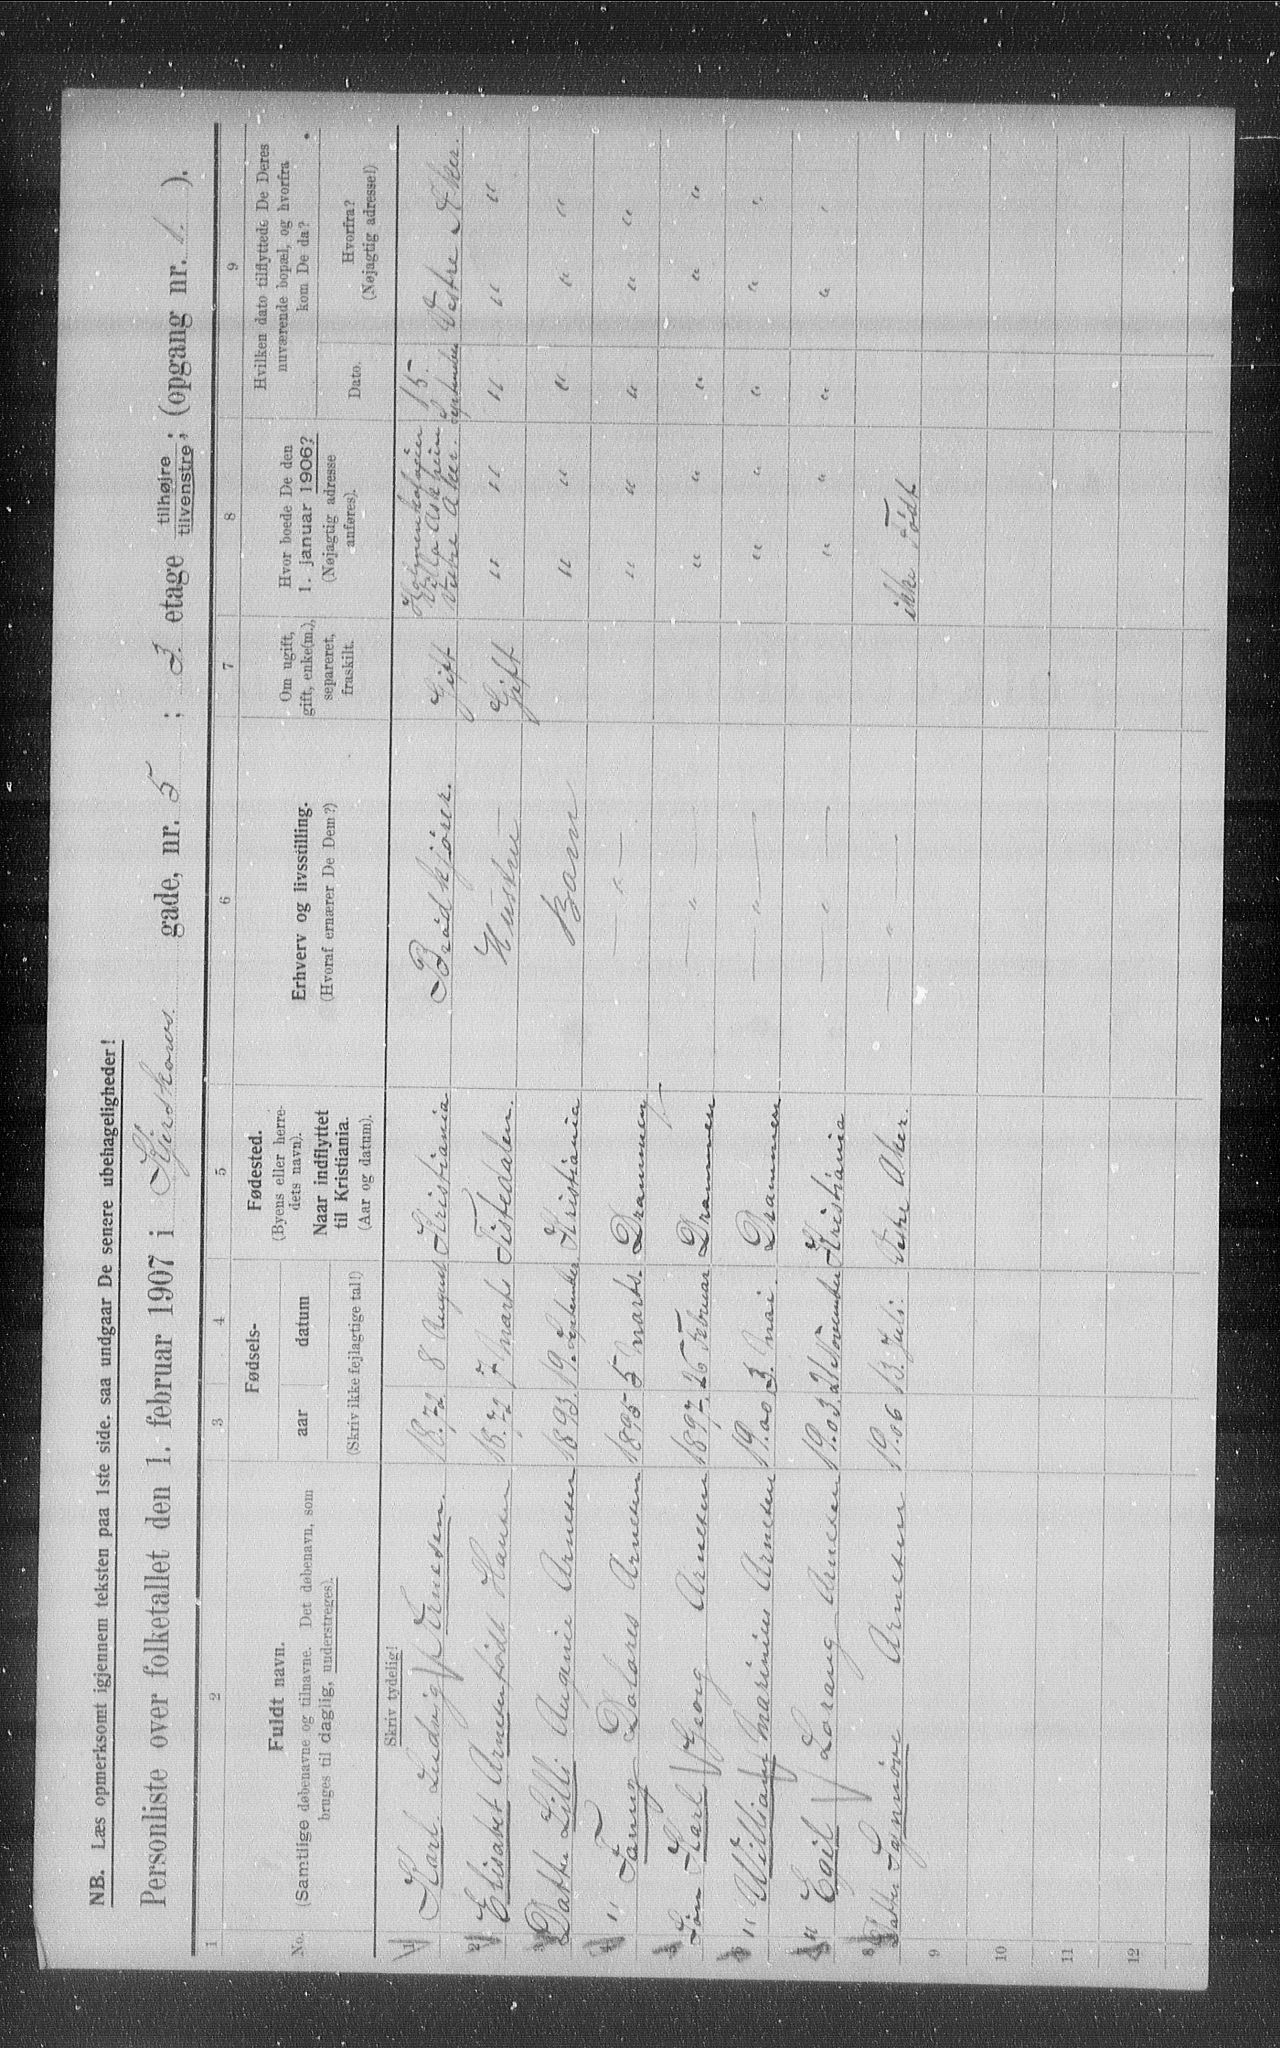 NB. Læs opmerksomt igjennem teksten paa 1ste side, saa undgaar De senere ubehageligheder!
Personliste over folketallet den 1. februar 1907 i Kjærskows gade, nr. 5 ; 3. etage tilhøjre tilvenstre; (opgang nr. 1. ).
1 2 3 4 5 6 7 8 9
No.
Fuldt navn.
(Samtlige døbenavne og tilnavne. Det døbenavn, som
bruges til daglig, understreges).
Fødsels-
aar datum
(Skriv ikke fejlagtige tal!)
Fødested.
(Byens eller herre-
dets navn).
Naar indflyttet
til Kristiania.
(Aar og datum).
Erhverv og livsstilling.
(Hvoraf ernærer De Dem?)
Om ugift,
gift, enke(m.),
separeret,
fraskilt.
Hvor boede De den
1. januar 1906?
(Nøjagtig adresse
anføres).
Hvilken dato tilflyttede De Deres
nuværende bopæl, og hvorfra
kom De da?
Dato.
Hvorfra?
(Nøjagtig adresse!)
Skriv tydelig!
1 Karl Ludvig Arnesen. 1872 8 August Kristiania Brødkjører. Gift Holmenkolveien Villa Askheim Vestre Aker. 15. September Vestre Aker.
2 Elisabet Arnesen født Hansen 1872 7 Marts Tistedalen. Hustru Gift " " " " "
3 Datter Lilli Augenie Arnesen 1893. 19. September Kristiania Barn " " " " "
4 " Fanny Dolores Arnesen 1895 5 Marts. Drammen — " — " " " " "
5 Søn Karl Georg Arnesen 1897. 26 Februar Drammen — " — " " " " "
6 " William Marinius Arnesen 1900 3. Mai. Drammen — " — " " " " "
7 " Egil Lorang Arnesen 1903 21 November Kristiania — " — " " " " "
8 Datter Synnøve Arnesen 1906 13. Juli. Vestre Aker. — " — ikke født
9
10
11
12